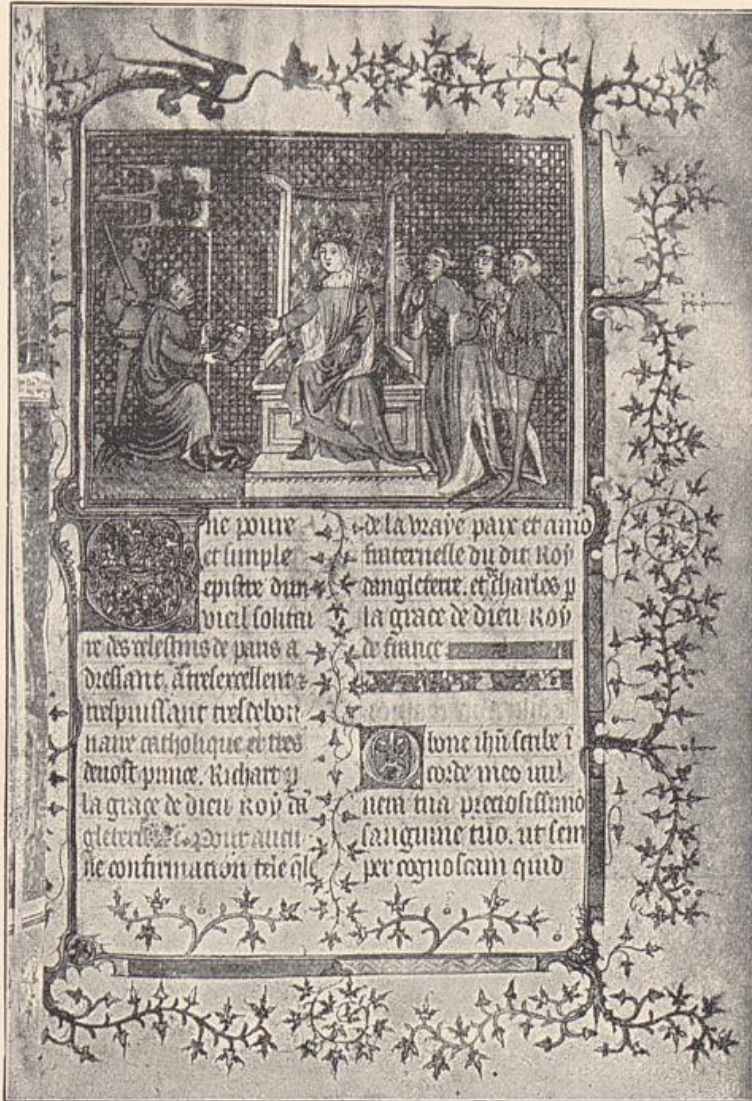 ne poure
et simple
epistre dun
vieil solitai
re des celestins de paris a
dressant. a tresexcellent ⁊
trespuissant tresdebon
naire catholique et tres
devost prince. Richart p
la grace de dieu Roy dā
gleterre Pour aucu
ne confirmation
de la vraye paix et amo
fraternelle du dit Roy
dangleterre. et charles p
la grace de dieu Roy
de france
bone ihū scribe ī
corde meo vul
nera tua preciosissimo
sanguine tuo. ut sem
per cognoscam quid